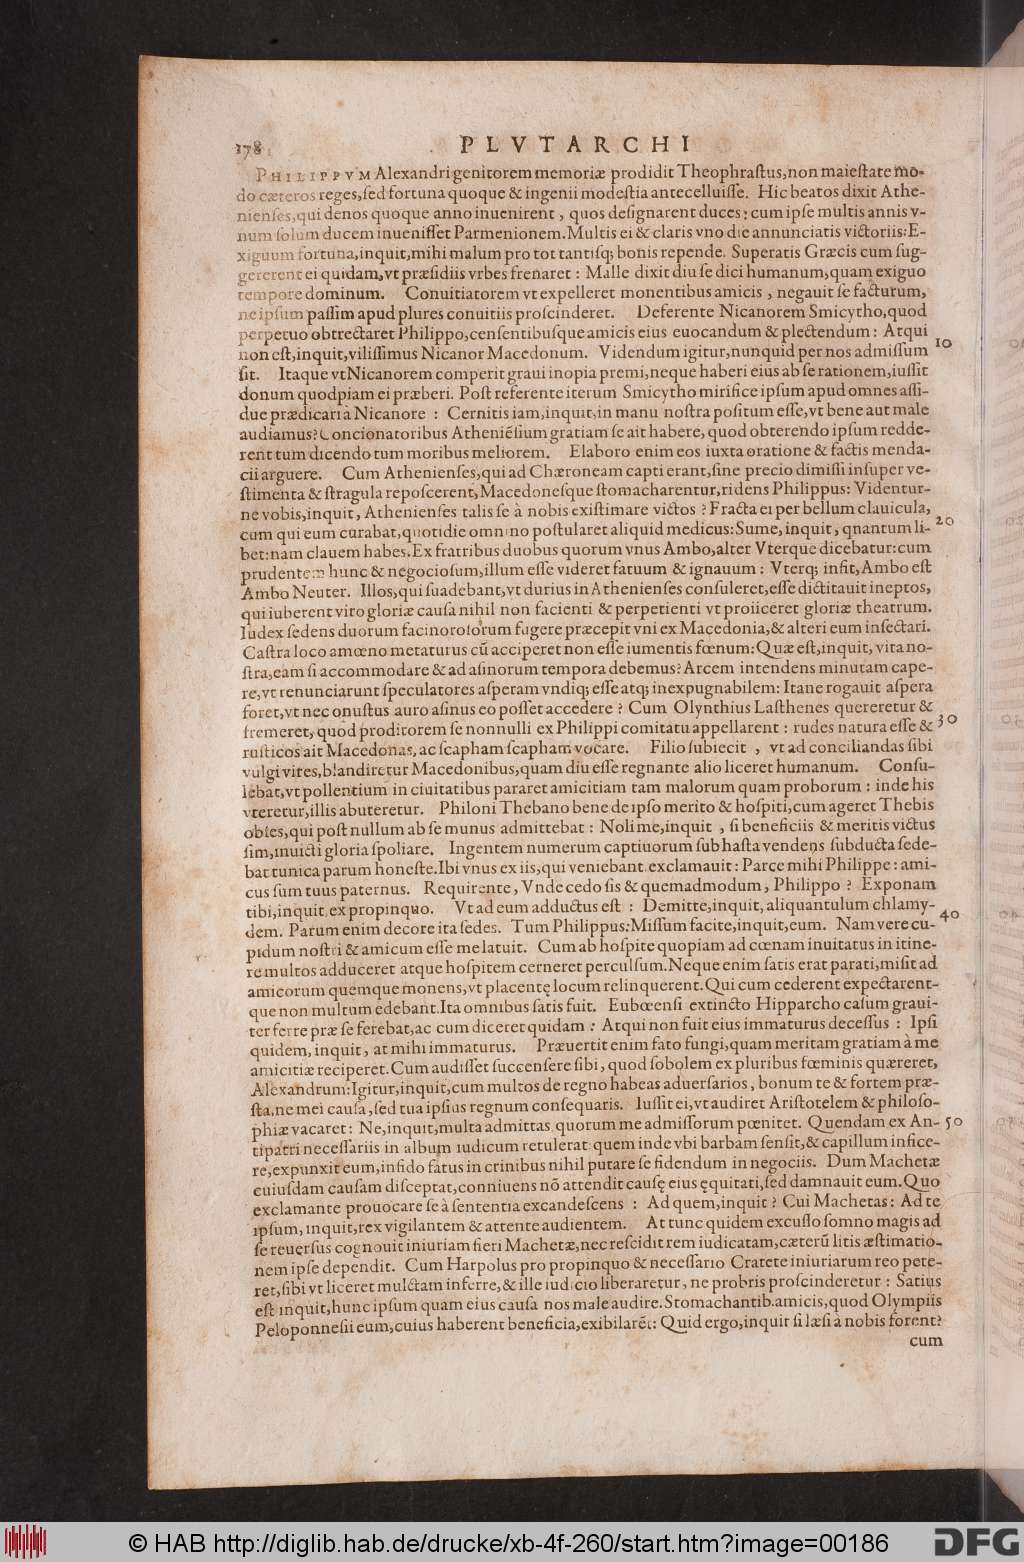 178 PLVTARCHI
PHILIPPVM Alexandri genitorem memoriæ prodidit Theophraſtus,non maieſtate mo-
do cæteros reges,ſed fortuna quoque & ingenii modeſtia antecelluiſſe. Hic beatos dixit Athe-
nienſes,qui denos quoque anno inuenirent , quos deſignarent duces: cum ipſe multis annis v-
num ſolum ducem inueniſſet Parmenionem.Multis ei & claris vno die annunciatis victoriis:E-
xiguum fortuna,inquit,mihi malum pro tot tantiſq; bonis repende. Superatis Græcis cum ſug-
gererent ei quidam,vt præſidiis vrbes frenaret : Malle dixit diu ſe dici humanum,quam exiguo
tempore dominum. Conuitiatorem vt expelleret monentibus amicis , negauit ſe facturum,
ne ipſum paſſim apud plures conuitiis proſcinderet. Deferente Nicanorem Smicytho,quod
perpetuo obtrectaret Philippo,cenſentibuſque amicis eius euocandum & plectendum : Atqui
non eſt,inquit,viliſſimus Nicanor Macedonum. Videndum igitur,nunquid per nos admiſſum 10
ſit. Itaque vt Nicanorem comperit graui inopia premi,neque haberi eius ab ſe rationem,iuſſit
donum quodpiam ei præberi. Poſt referente iterum Smicytho mirifice ipſum apud omnes aſſi-
due prædicari à Nicanore : Cernitis iam,inquit,in manu noſtra poſitum eſſe,vt bene aut male
audiamus?Concionatoribus Atheniẽſium gratiam ſe ait habere, quod obterendo ipſum redde-
rent tum dicendo tum moribus meliorem. Elaboro enim eos iuxta oratione & factis menda-
cii arguere. Cum Athenienſes,qui ad Chæroneam capti erant,ſine precio dimiſſi inſuper ve-
ſtimenta & ſtragula repoſcerent,Macedoneſque ſtomacharentur,ridens Philippus: Videntur-
ne vobis,inquit, Athenienſes talis ſe à nobis exiſtimare victos ? Fracta ei per bellum clauicula,
cum qui eum curabat,quotidie omnino poſtularet aliquid medicus:Sume,inquit, quantum li- 20
bet:nam clauem habes.Ex fratribus duobus quorum vnus Ambo,alter Vterque dicebatur:cum
prudentem hunc & negocioſum,illum eſſe videret fatuum & ignauum : Vterq; inſit,Ambo eſt
Ambo Neuter. Illos,qui ſuadebant,vt durius in Athenienſes conſuleret,eſſe dictitauit ineptos,
qui iuberent viro gloriæ cauſa nihil non facienti & perpetienti vt proiiceret gloriæ theatrum.
Iudex ſedens duorum facinoroſorum fugere præcepit vni ex Macedonia,& alteri eum inſectari.
Caſtra loco amœno metaturus cũ acciperet non eſſe iumentis fœnum:Quæ eſt,inquit, vita no-
ſtra,eam ſi accommodare & ad aſinorum tempora debemus? Arcem intendens minutam cape-
re,vt renunciarunt ſpeculatores aſperam vndiq; eſſe atq; inexpugnabilem: Itane rogauit aſpera
foret,vt nec onuſtus auro aſinus eo poſſet accedere ? Cum Olynthius Laſthenes quereretur &
fremeret,quod proditorem ſe nonnulli ex Philippi comitatu appellarent : rudes natura eſſe & 30
ruſticos ait Macedonas, ac ſcapham ſcapham vocare. Filio ſubiecit , vt ad conciliandas ſibi
vulgi vires,blandiretur Macedonibus,quam diu eſſe regnante alio liceret humanum. Conſu-
lebat,vt pollentium in ciuitatibus pararet amicitiam tam malorum quam proborum : inde his
vteretur,illis abuteretur. Philoni Thebano bene de ipſo merito & hoſpiti,cum ageret Thebis
obſes,qui poſt nullum ab ſe munus admittebat : Noli me,inquit , ſi beneficiis & meritis victus
ſim,inuicti gloria ſpoliare. Ingentem numerum captiuorum ſub haſta vendens ſubducta ſede-
bat tunica parum honeſte.Ibi vnus ex iis,qui veniebant exclamauit : Parce mihi Philippe : ami-
cus ſum tuus paternus. Requirente , Vnde cedo ſis & quemadmodum , Philippo ? Exponam
tibi,inquit ex propinquo. Vt ad eum adductus eſt : Demitte,inquit,aliquantulum chlamy- 40
dem. Parum enim decore ita ſedes. Tum Philippus:Miſſum facite,inquit,eum. Nam vere cu-
pidum noſtri & amicum eſſe me latuit. Cum ab hoſpite quopiam ad cœnam inuitatus in itine-
re multos adduceret atque hoſpitem cerneret perculſum.Neque enim ſatis erat parati,miſit ad
amicorum quemque monens,vt placentę locum relinquerent.Qui cum cederent expectarent-
que non multum edebant.Ita omnibus ſatis fuit. Eubœenſi extincto Hipparcho caſum graui-
ter ferre præ ſe ferebat,ac cum diceret quidam : Atqui non fuit eius immaturus deceſſus : Ipſi
quidem, inquit , at mihi immaturus. Præuertit enim fato fungi,quam meritam gratiam à me
amicitiæ reciperet.Cum audiſſet ſuccenſere ſibi , quod ſobolem ex pluribus fœminis quæreret,
Alexandrum:Igitur,inquit,cum multos de regno habeas aduerſarios , bonum te & fortem præ-
ſta,ne mei cauſa,ſed tua ipſius regnum conſequaris. Iuſſit ei,vt audiret Ariſtotelem & philoſo-
phiæ vacaret : Ne,inquit,multa admittas quorum me admiſſorum pœnitet. Quendam ex An- 50
tipatri neceſſariis in album iudicum retulerat quem inde vbi barbam ſenſit,& capillum inſice-
re,expunxit eum,infido fatus in crinibus nihil putare ſe fidendum in negociis. Dum Machetæ
cuiuſdam cauſam diſceptat,conniuens nõ attendit cauſę eius ęquitati,ſed damnauit eum.Quo
exclamante prouocare ſe à ſententia excandeſcens : Ad quem,inquit ? Cui Machetas : Ad te
ipſum, inquit,rex vigilantem & attente audientem. At tunc quidem excuſſo ſomno magis ad
ſe reuerſus cognouit iniuriam fieri Machetæ,nec reſcidit rem iudicatam,cæterũ litis æſtimatio-
nem ipſe dependit. Cum Harpolus pro propinquo & neceſſario Cratete iniuriarum reo pete-
ret,ſibi vt liceret mulctam inferre,& ille iudicio liberaretur , ne probris proſcinderetur : Satius
eſt inquit,hunc ipſum quam eius cauſa nos male audire.Stomachantib.amicis,quod Olympiis
Peloponneſii eum,cuius haberent beneficia,exibilarẽt: Quid ergo,inquit ſi læſi à nobis forent?
cum
© HAB http://diglib.hab.de/drucke/xb-4f-260/start.htm?image=00186 DFG